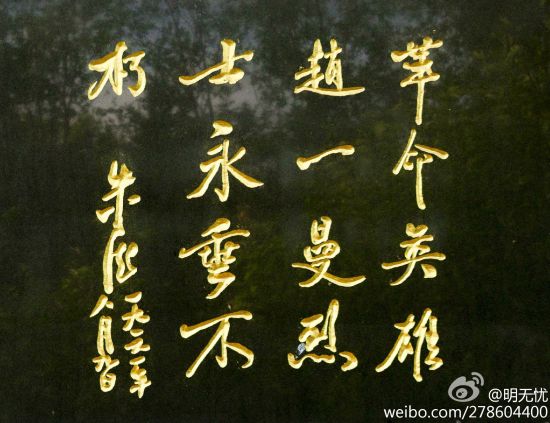 革命英雄
趙一曼烈
士永垂不
朽
朱德
@明无忧
weibo.com/278604400